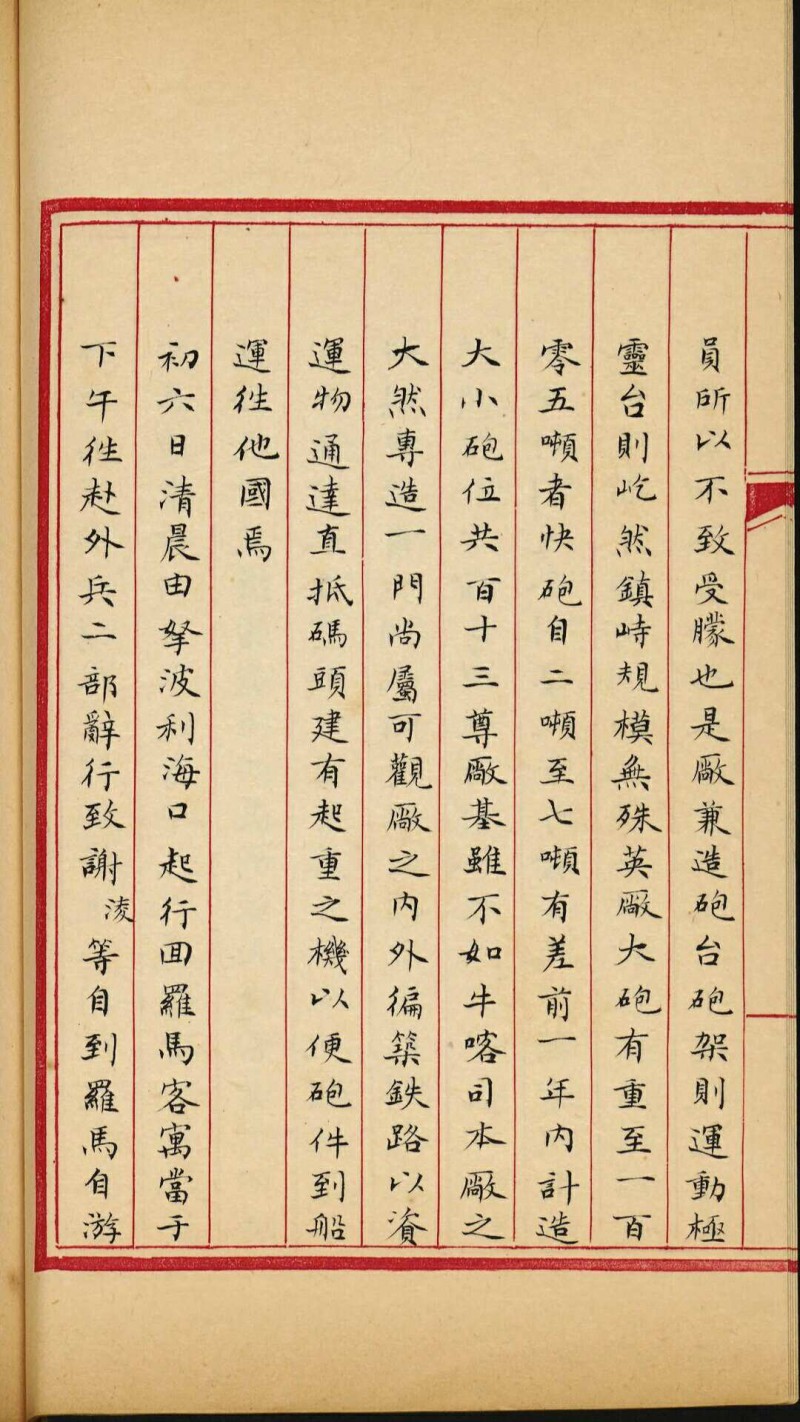 員所以不致受朦也是廠兼造砲台砲架則運動極
靈台則屹然鎮峙規模無殊英廠大砲有重至一百
零五噸者快砲自二噸至七噸有差前一年內計造
大小砲位共百十三尊廠基雖不如牛喀司本廠之
大然專造一門尚屬可觀廠之內外徧築鉄路以資
運物通達直抵碼頭建有起重之機以便砲件到船
運往他國焉
初六日清晨由拏波利海口起行囬羅馬客寓當于
下午往赴外兵二部辭行致謝淩等自到羅馬自游